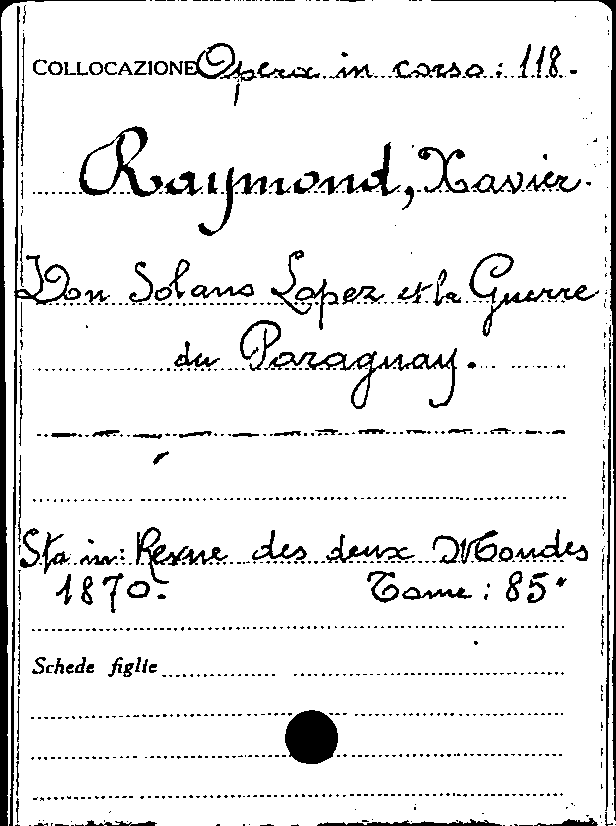 COLLOCAZIONE Opera in corso: 118.
Raymond, Xavier.
Don Solano Lopez et la Guerre
du Paraguay.
Sta in: Revue des deux Mondes
1870. Tome: 85°
Schede figlie